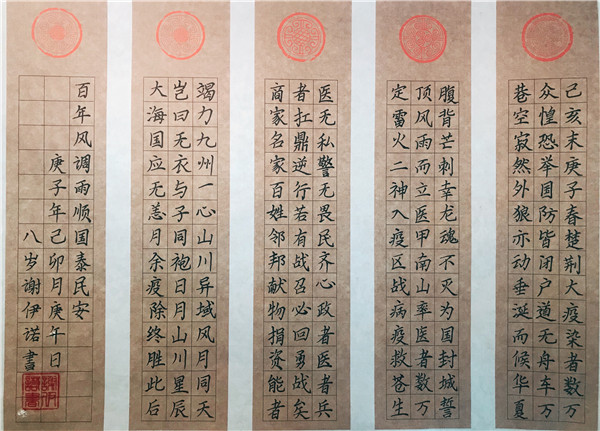 己亥末庚子春楚荆大疫染者数万
众惶恐举国防皆闭户道无舟车万
巷空寂然外狼亦动垂涎而候华夏
腹背芒刺幸龙魂不灭为国封城誓
顶风雨而立医甲南山率医者数万
定雷火二神入疫区战病疫救苍生
医无私警无畏民齐心政者医者兵
者扛鼎逆行若有战召必回勇战矣
商家名家百姓邻邦献物捐资能者
竭力九州一心山川异域风月同天
岂曰无衣与子同袍日月山川星辰
大海国应无恙月余疫除终胜此后
百年风调雨顺国泰民安
庚子年己卯月庚午日
八岁谢伊诺書